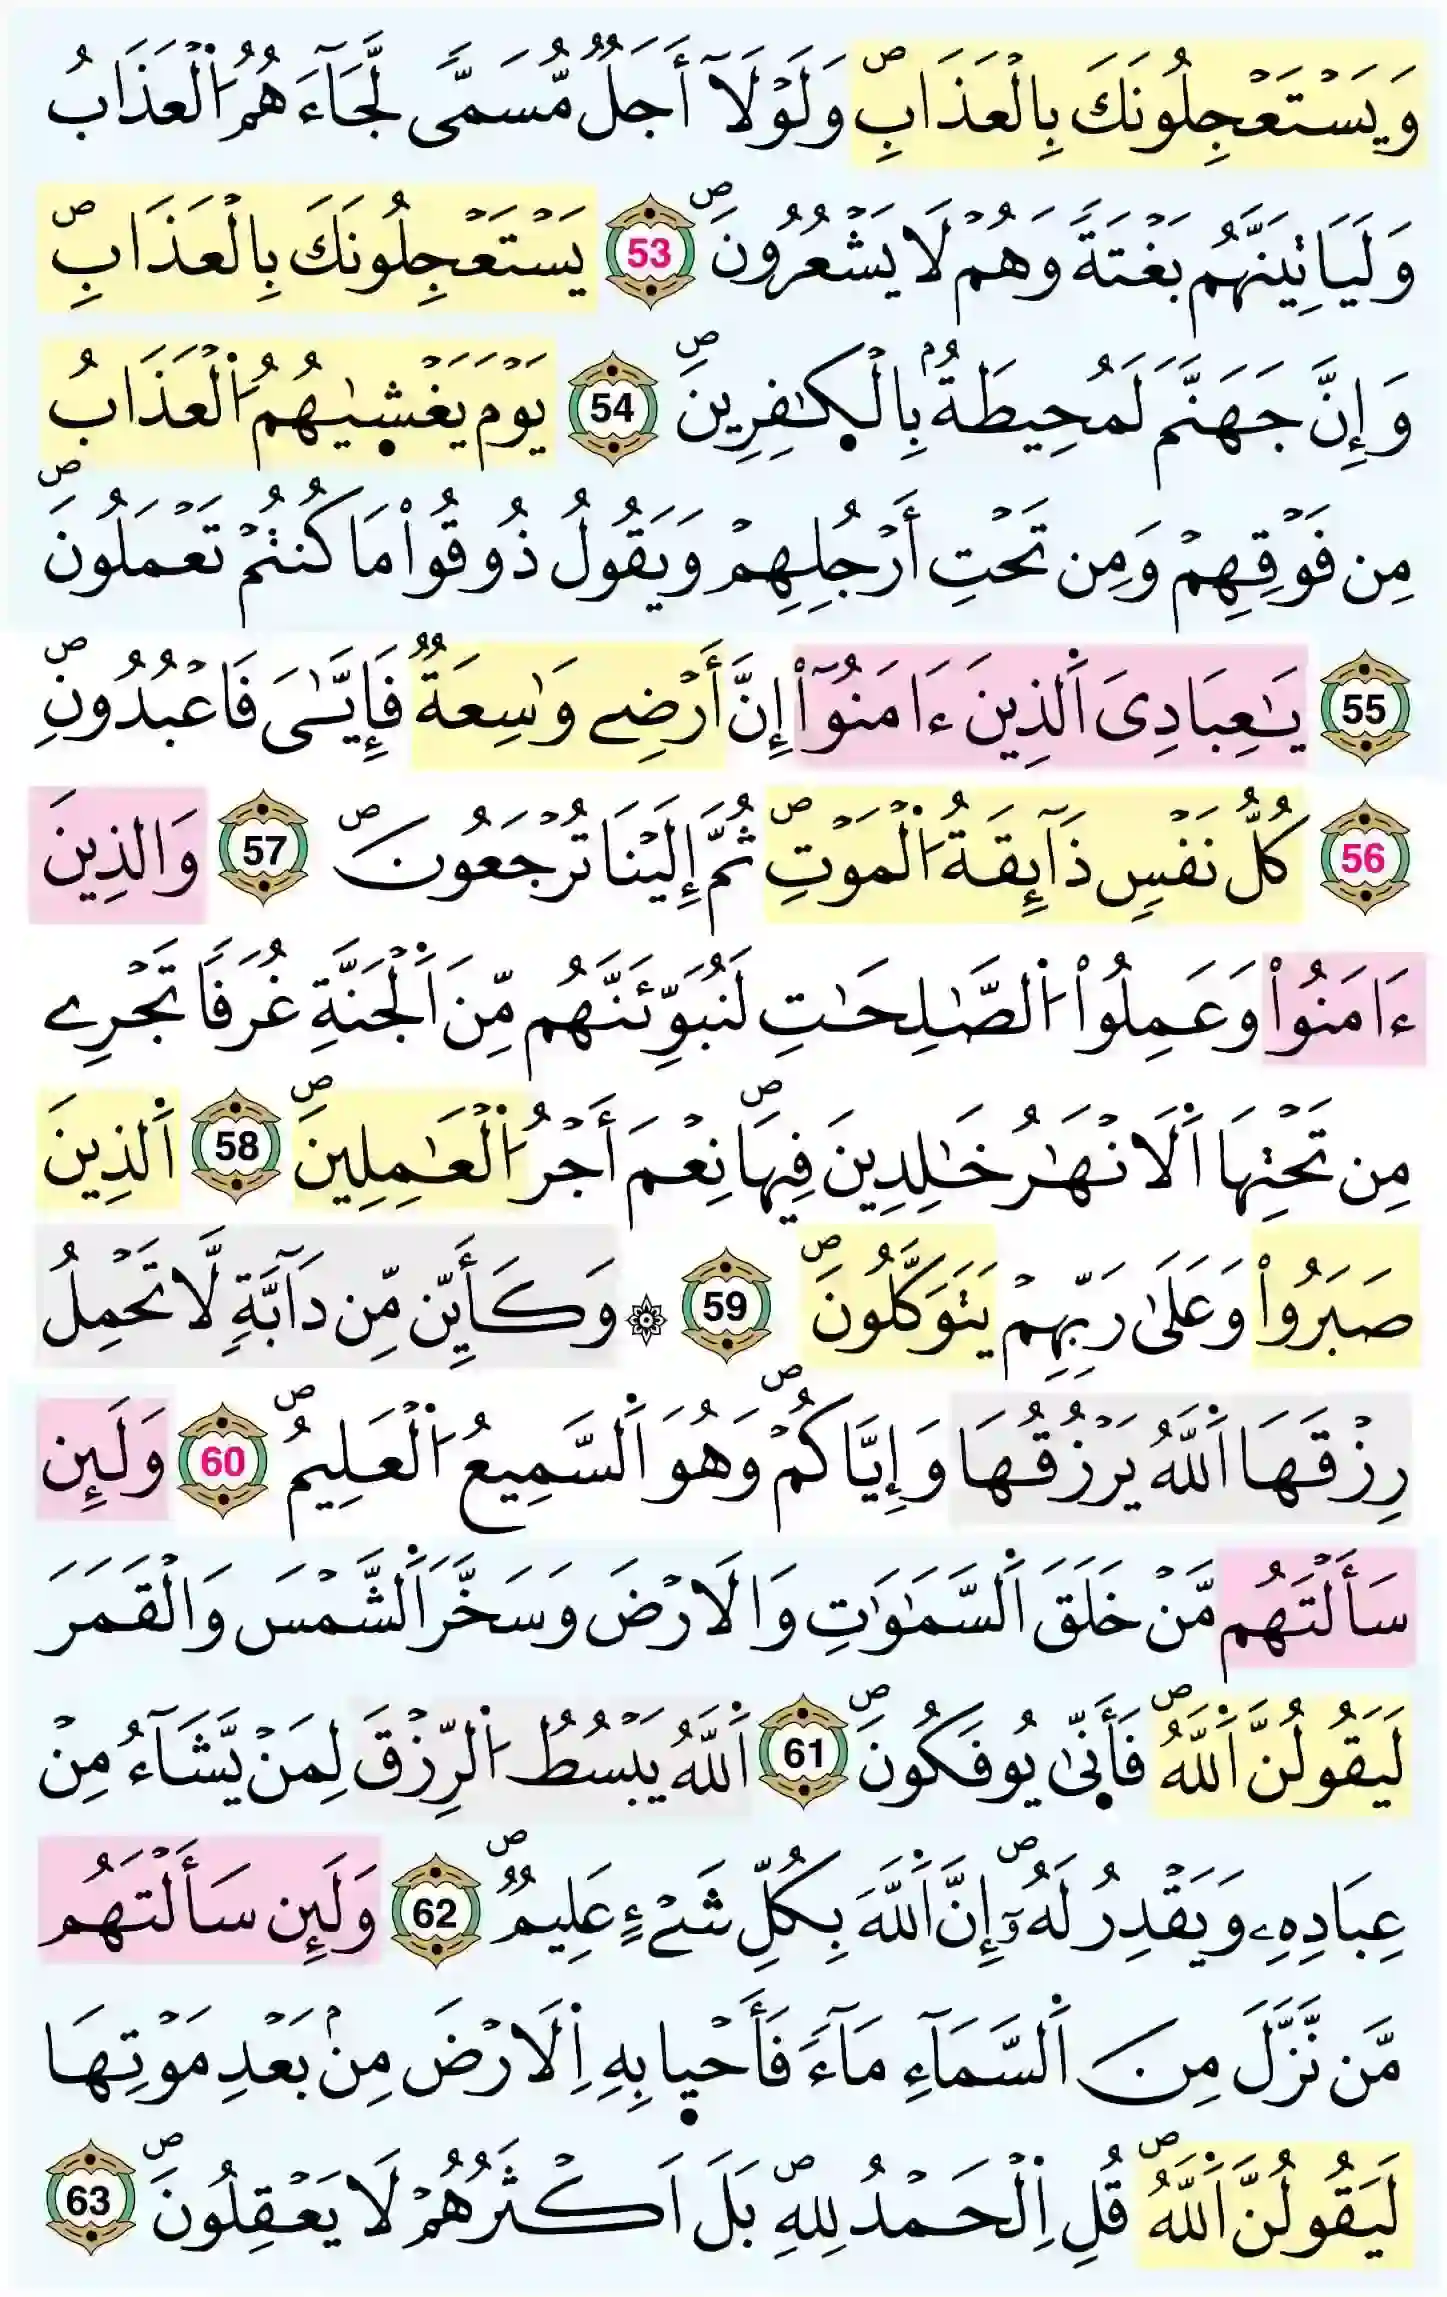 وَيَسْتَعْجِلُونَكَ بِالْعَذَابِۖ وَلَوْلَآ أَجَلٞ مُّسَمّٗى لَّجَآءَهُمُ اُ۬لْعَذَابُ
وَلَيَاتِيَنَّهُم بَغْتَةٗ وَهُمْ لَا يَشْعُرُونَۖ 53 يَسْتَعْجِلُونَكَ بِالْعَذَابِۖ
وَإِنَّ جَهَنَّمَ لَمُحِيطَةُۢ بِالْكٰ۪فِرِينَۖ 54 يَوْمَ يَغْش۪يٰهُمُ اُ۬لْعَذَابُ
مِن فَوْقِهِمْ وَمِن تَحْتِ أَرْجُلِهِمْ وَيَقُولُ ذُوقُواْ مَا كُنتُمْ تَعْمَلُونَۖ
55 يَٰعِبَادِيَ اَ۬لذِينَ ءَامَنُوٓاْ إِنَّ أَرْضِے وَٰسِعَةٞ فَإِيَّٰيَ فَاعْبُدُونِۖ
56 كُلُّ نَفْسٖ ذَآئِقَةُ اُ۬لْمَوْتِۖ ثُمَّ إِلَيْنَا تُرْجَعُونَۖ 57 وَالذِينَ
ءَامَنُواْ وَعَمِلُواْ اُ۬لصَّٰلِحَٰتِ لَنُبَوِّئَنَّهُم مِّنَ اَ۬لْجَنَّةِ غُرَفٗا تَجْرِے
مِن تَحْتِهَا اَ۬لَانْهَٰرُ خَٰلِدِينَ فِيهَاۖ نِعْمَ أَجْرُ اُ۬لْعَٰمِلِينَۖ 58 اَ۬لذِينَ
صَبَرُواْ وَعَلَىٰ رَبِّهِمْ يَتَوَكَّلُونَۖ 59 ۞ وَكَأَيِّن مِّن دَآبَّةٖ لَّا تَحْمِلُ
رِزْقَهَا اَ۬للَّهُ يَرْزُقُهَا وَإِيَّاكُمْۖ وَهُوَ اَ۬لسَّمِيعُ اُ۬لْعَلِيمُۖ 60 وَلَئِن
سَأَلْتَهُم مَّنْ خَلَقَ اَ۬لسَّمَٰوَٰتِ وَالَارْضَ وَسَخَّرَ اَ۬لشَّمْسَ وَالْقَمَرَ
لَيَقُولُنَّ اَ۬للَّهُۖ فَأَنّ۪يٰ يُوفَكُونَۖ 61 اَ۬للَّهُ يَبْسُطُ اُ۬لرِّزْقَ لِمَنْ يَّشَآءُ مِنْ
عِبَادِهِۦ وَيَقْدِرُ لَهُۥٓۖ إِنَّ اَ۬للَّهَ بِكُلِّ شَےْءٍ عَلِيمٞۖ 62 وَلَئِن سَأَلْتَهُم
مَّن نَّزَّلَ مِنَ اَ۬لسَّمَآءِ مَآءٗ فَأَحْي۪ا بِهِ اِ۬لَارْضَ مِنۢ بَعْدِ مَوْتِهَا
لَيَقُولُنَّ اَ۬للَّهُۖ قُلِ اِ۬لْحَمْدُ لِلهِۖ بَلَ اَكْثَرُهُمْ لَا يَعْقِلُونَۖ 63